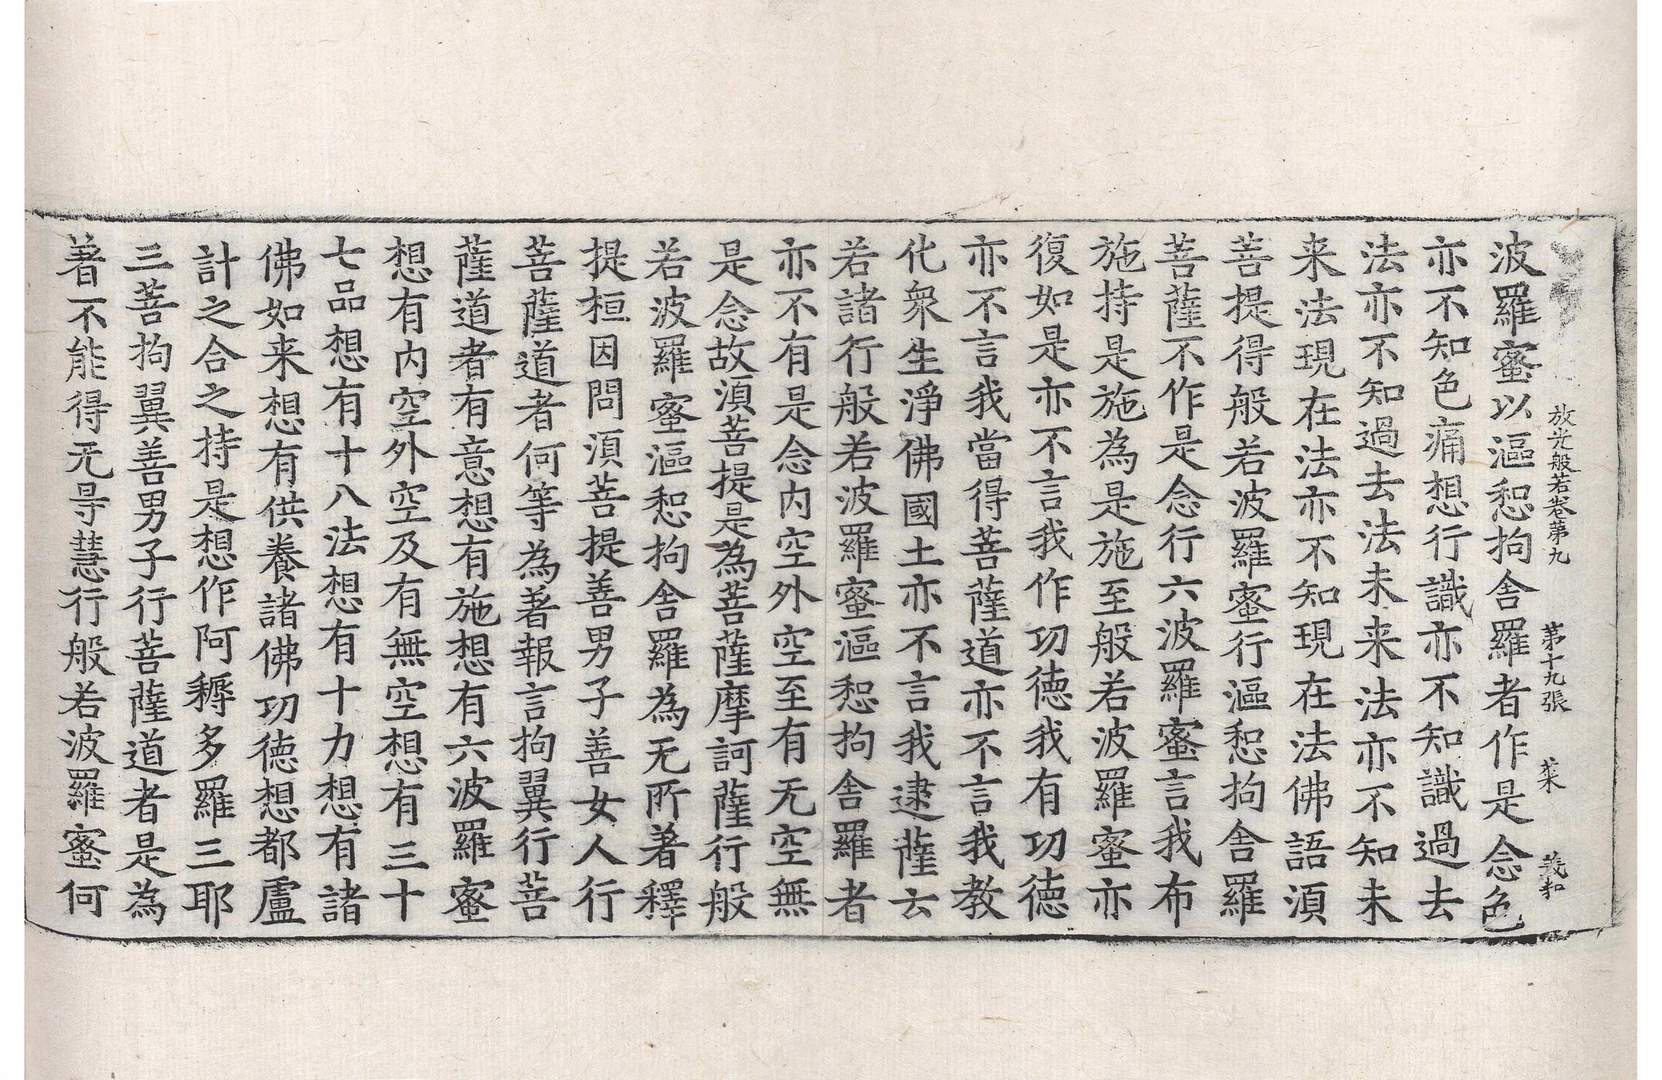 放光般若卷第九　第十九張　菜　義和
波羅蜜以漚惒拘舍羅者作是念色
亦不知色痛想行識亦不知識過去
法亦不知過去法未来法亦不知未
来法現在法亦不知現在法佛語湏
菩提得般若波羅蜜行漚惒拘舍羅
菩薩不作是念行六波羅蜜言我布
施持是施為是施至般若波羅蜜亦
復如是亦不言我作功德我有功德
亦不言我當得菩薩道亦不言我教
化衆生淨佛國土亦不言我逮薩云
若諸行般若波羅蜜漚惒拘舍羅者
亦不有是念内空外空至有无空無
是念故湏菩提是為菩薩摩訶薩行般
若波羅蜜漚惒拘舍羅為无所著釋
提桓因問湏菩提善男子善女人行
菩薩道者何等為著報言拘翼行菩
薩道者有意想有施想有六波羅蜜
想有内空外空及有無空想有三十
七品想有十八法想有十力想有諸
佛如来想有供養諸佛功德想都盧
計之合之持是想作阿耨多羅三耶
三菩拘翼善男子行菩薩道者是為
著不能得无㝵慧行般若波羅蜜何